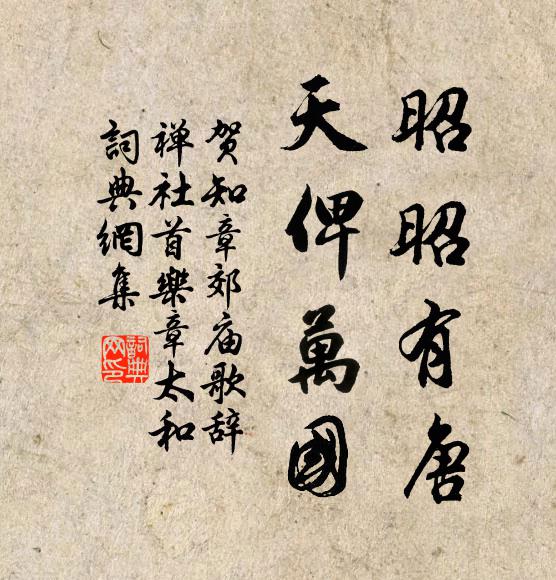 昭昭有唐
天俾萬國
贺知章郊庙歌辞
禅社首樂章太和
詞典網集
詞典
网印